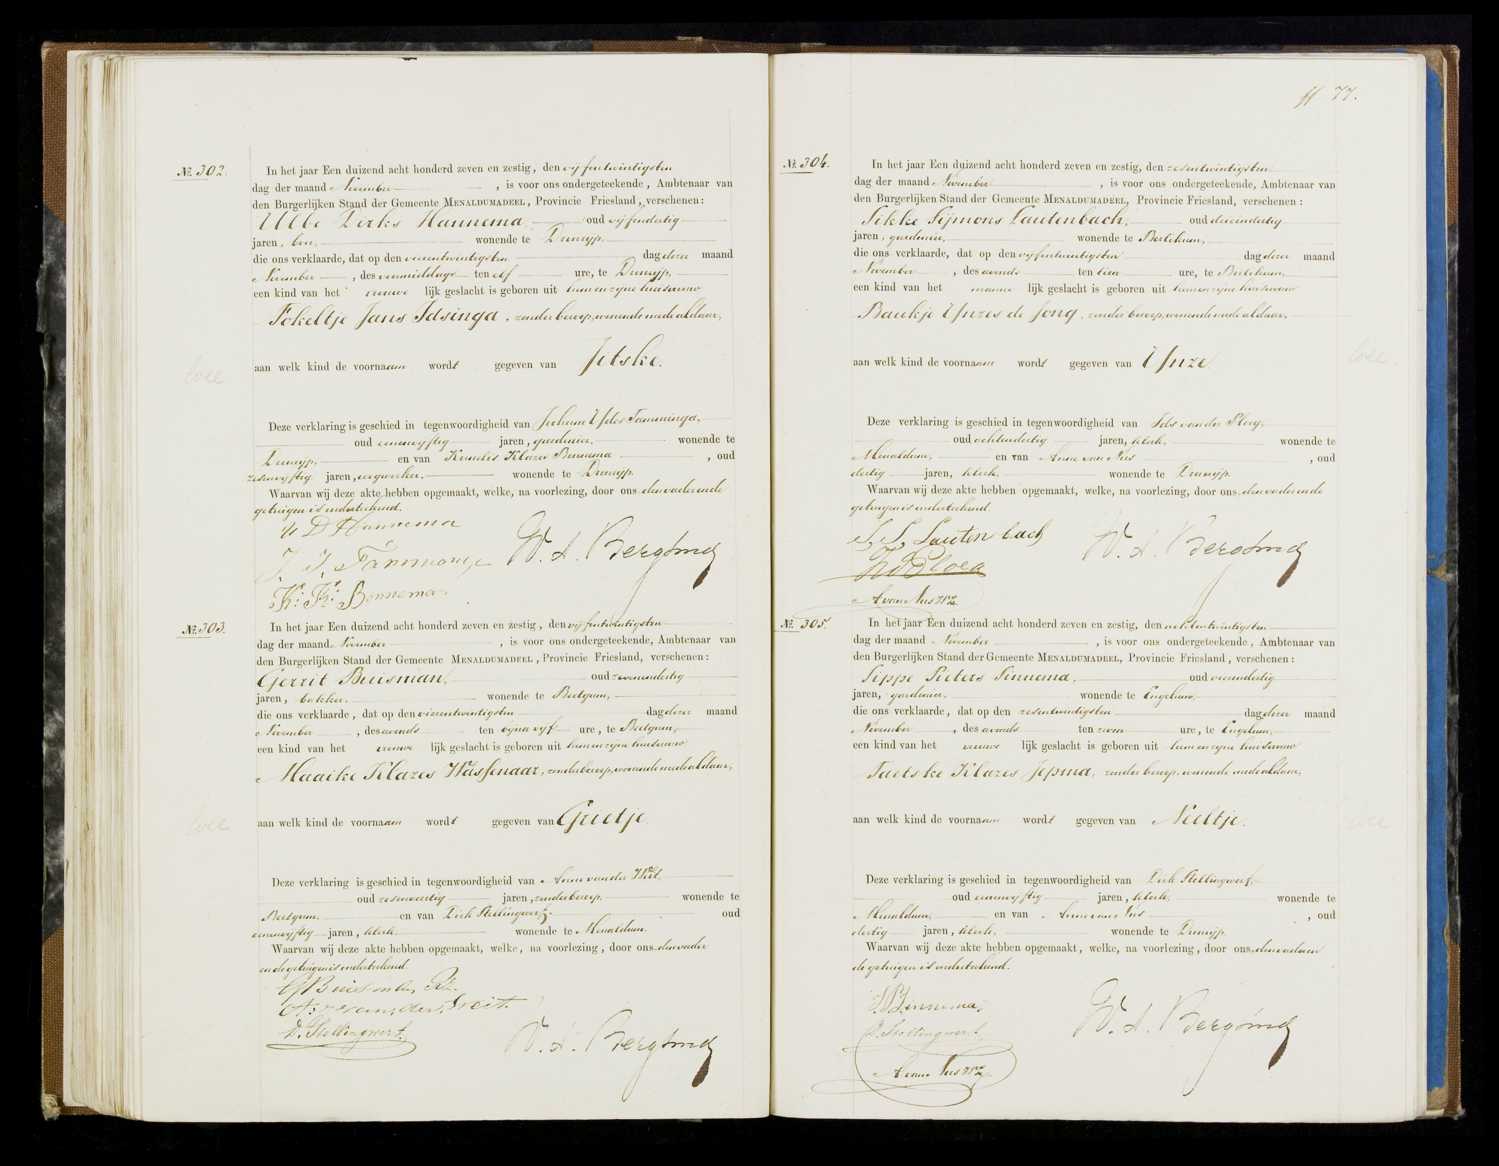 № 302.
In het jaar Een duizend acht honderd zeven en zestig, den vijfentwintigsten
dag der maand November, is voor ons ondergeteekende, Ambtenaar van
den Burgerlijken Stand der Gemeente MENALDUMADEEL, Provincie Friesland, verschenen:
Ulbe Dirks Hannema oud vijfendertig
jaren, wonende te Dronrijp,
die ons verklaarde, dat op den vierentwintigsten dag dezer maand
November, des voormiddags ten elf ure, te Dronrijp,
een kind van het vrouwelijk geslacht is geboren uit hem en zijne huisvrouw
Fokeltje Jans Idsinga, zonder beroep, wonende mede aldaar,
aan welk kind de voornaam wordt gegeven van Jetske.
Deze verklaring is geschied in tegenwoordigheid van Jochum Ydes Tamminga,
oud eenenvijftig jaren, gardenier, wonende te
Dronrijp, en van Klazes Bonnema, oud
zesenvijftig jaren, wonende te Dronrijp.
Waarvan wij deze akte hebben opgemaakt, welke, na voorlezing, door ons, den vader en de
getuigen is onderteekend.
U D Hannema
J. Y. Tamminga
Kl: Kl: Bonnema
W. A. Bergsma
№ 303.
In het jaar Een duizend acht honderd zeven en zestig, den vijfentwintigsten
dag der maand November, is voor ons ondergeteekende, Ambtenaar van
den Burgerlijken Stand der Gemeente MENALDUMADEEL, Provincie Friesland, verschenen:
Gerrit Buisman, oud zevenendertig
jaren, bakker, wonende te Beetgum,
die ons verklaarde, dat op den vierentwintigsten dag dezer maand
November, des avonds ten bijna vijf ure, te Beetgum,
een kind van het vrouwelijk geslacht is geboren uit hem en zijne huisvrouw
Maaike Klazes Wassenaar, zonder beroep, wonende mede aldaar,
aan welk kind de voornaam wordt gegeven van Grietje.
Deze verklaring is geschied in tegenwoordigheid van Anne van der
oud zesenveertig jaren, zonder beroep, wonende te
Beetgum, en van Dirk Stellingwerf, oud
eenenvijftig jaren, klerk, wonende te Menaldum.
Waarvan wij deze akte hebben opgemaakt, welke, na voorlezing, door ons, den vader
en de getuigen is onderteekend.
G Buisman
D. Stellingwerf.
W. A. Bergsma
77.
№ 304.
In het jaar Een duizend acht honderd zeven en zestig, den zesentwintigsten
dag der maand November, is voor ons ondergeteekende, Ambtenaar van
den Burgerlijken Stand der Gemeente MENALDUMADEEL, Provincie Friesland, verschenen:
Sikke Sijmons Lautenbach, oud drieendertig
jaren, gardenier, wonende te Berlikum,
die ons verklaarde, dat op den vijfentwintigsten dag dezer maand
November, des avonds ten tien ure, te Berlikum,
een kind van het mannelijk geslacht is geboren uit hem en zijne huisvrouw
Baukje IJnzes de Jong, zonder beroep, wonende mede aldaar,
aan welk kind de voornaam wordt gegeven van IJnze.
Deze verklaring is geschied in tegenwoordigheid van van der Ploeg,
oud achtendertig jaren, klerk, wonende te
Menaldum, en van Anne van Nes, oud
dertig jaren, klerk, wonende te Dronrijp.
Waarvan wij deze akte hebben opgemaakt, welke, na voorlezing, door ons, den vader en de
getuigen is onderteekend.
S. S. Lautenbach
A van Nes Wz
W. A. Bergsma
№ 305.
In het jaar Een duizend acht honderd zeven en zestig, den achtentwintigsten
dag der maand November, is voor ons ondergeteekende, Ambtenaar van
den Burgerlijken Stand der Gemeente MENALDUMADEEL, Provincie Friesland, verschenen:
Seppe Pieters Sinnema, oud vierendertig
jaren, gardenier, wonende te Engelum,
die ons verklaarde, dat op den zesentwintigsten dag dezer maand
November, des avonds ten zeven ure, te Engelum,
een kind van het vrouwelijk geslacht is geboren uit hem en zijne huisvrouw
Taetske Klazes Jepma, zonder beroep, wonende mede aldaar,
aan welk kind de voornaam wordt gegeven van Neeltje.
Deze verklaring is geschied in tegenwoordigheid van Dirk Stellingwerf,
oud eenenvijftig jaren, klerk, wonende te
Menaldum, en van Anne van Nes, oud
dertig jaren, klerk, wonende te Dronrijp.
Waarvan wij deze akte hebben opgemaakt, welke, na voorlezing, door ons, den vader en
de getuigen is onderteekend.
S P Sinnema.
D. Stellingwerf.
A van Nes Wz
W. A. Bergsma